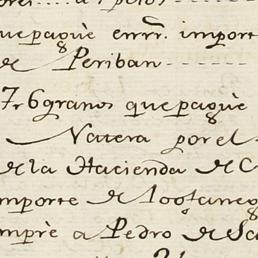 que paguè en rr. import
de Periban
7 r 6 granos que paguè
Natera por el
de la Hacienda de C
mporte de 100 faneg
mprè a Pedro de Sa